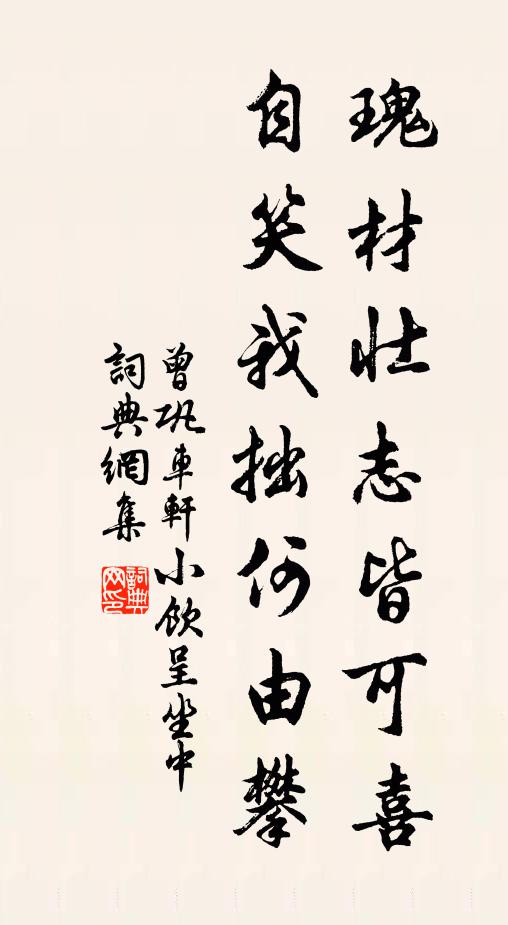 瑰材壯志皆可喜
自笑我拙何由攀
曾巩車軒小飲呈坐中
詞典網集
詞典
网印